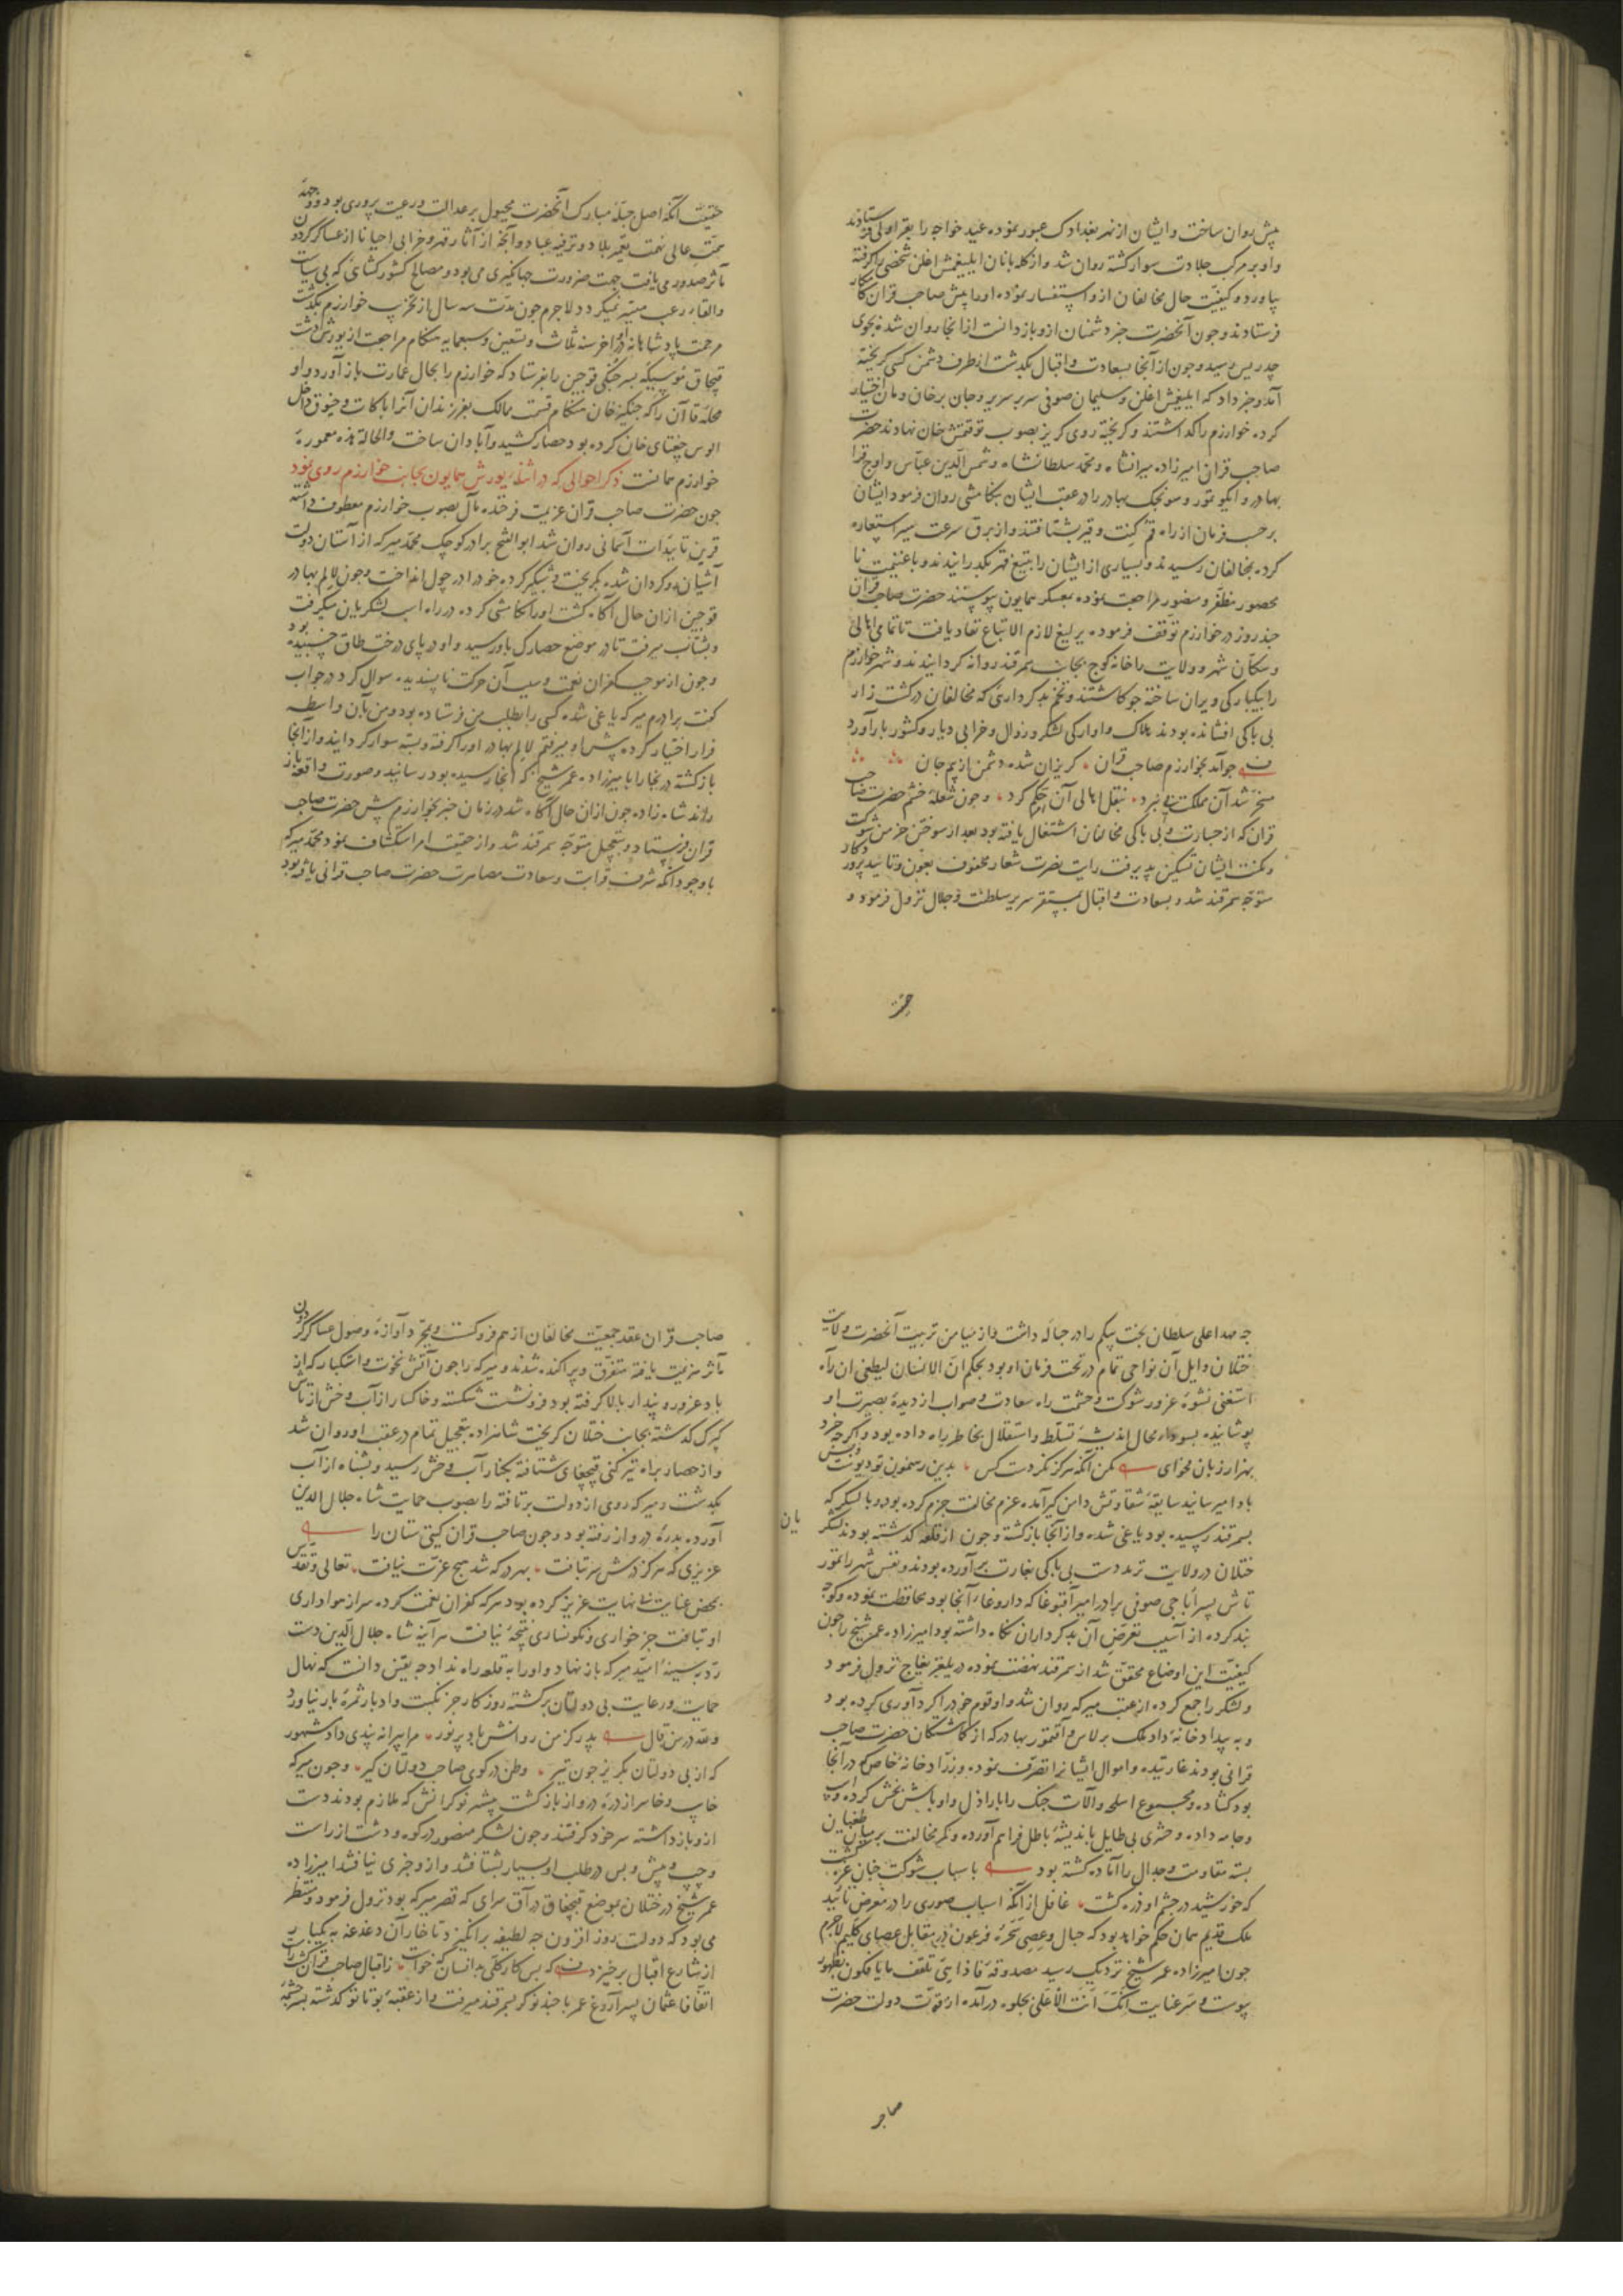 پیش روان ساخت و ایشان از نهر بغدادک عبور نموده عید خواجه را بقراولی فرستادند
و او بر مرکب جلادت سوار گشته روان شد و از گله بانان ایلیغمش اغلن شخصی را گرفته
بیاورد و کیفیت حال مخالفان ازو استفسار نموده او را پیش صاحب قران کامکار
فرستادند و چون آنحضرت خبر دشمنان ازو باز دانست از آنجا روان شد بجوی
جدریس رسید و چون از آنجا بسعادت و اقبال بگذشت از طرف دشمن کسی گریخته
آمد و خبر داد که ایلیغمش اغلن و سلیمان صوفی سر بر سریر و جان بر خان و مان اختیار
کرده خوارزم را گذاشتند و گریخته روی گریز بصوب توقتمش خان نهادند حضرت
صاحب قران امیرزاده میرانشاه و محمد سلطانشاه و شمس الدین عباس و اوچ قرا
بهادر و ایکو تمور و سونجک بهادر را در عقب ایشان بتکامشی روان فرمود ایشان
بر حسب فرمان از راه قم کنت و قیر بشتافتند و از برق سرعت سیر استعاره
کرده بمخالفان رسیدند و بسیاری از ایشان را بتیغ قهر بگذرانیدند و با غنیمت نا
محصور مظفر و منصور مراجعت نموده بمعسکر همایون پیوستند حضرت صاحب قران
چند روز در خوارزم توقف فرموده یرلیغ لازم الاتباع نفاد یافت تا تمامی اهالی
و سکان شهر و ولایت را خانه کوچ بجانب سمرقند روانه گردانیدند و شهر خوارزم
را بیکبارگی ویران ساخته جو کاشتند و تخم بدکرداری که مخالفان در کشت زار
بی باکی افشانده بودند هلاک و آوارگی لشکر و زوال و خرابی دیار و کشور بار آورد
چو آمد بخوارزم صاحب قران گریزان شده دشمن از بیم جان
مسخر شد آن مملکت بی نبرد بنقل اهالی آن حکم کرد و چون شعله خشم حضرت صاحب
قران که از جسارت و بی باکی مخالفان اشتغال یافته بود بعد از سوختن خرمن شوکت
و مکنت ایشان تسکین پذیرفت رایت نصرت شعار محفوف بعون و تائید پروردگار
متوجه سمرقند شد و بسعادت و اقبال بمستقر سریر سلطنت و جلال نزول فرمود و
حقیقت آنکه اصل جبله مبارک آنحضرت مجبول بر عدالت و رعیت پروری بود و وجهه
همت عالی نهمت بتعمیر بلاد و ترفیه عباد و آنچه از آثار قهر و خرابی احیانا از عساکر گردون
مآثر صدور می یافت جهت ضرورت جهانگیری می بود و مصالح کشور کشائی که بی سیاست
و القاء رعب میسر نمیگردد لاجرم چون مدت سه سال از تخریب خوارزم بگذشت
مرحمت پادشاهانه در اواخر سنه ثلاث و تسعین و سبعمایه هنگام مراجعت از یورش دشت
قبچاق موسیکه پسر جنکی قوجین را بفرستاد که خوارزم را بحال عمارت باز آورد و او
محله قاآن را که چنگیز خان هنگام قسمت ممالک بفرزندان آنرا با کات و خیوق داخل
الوس چغتای خان کرده بود حصار کشید و آبادان ساخت و الحالة هذه معموره
خوارزم همانست ذکر احوالی که در اثناء یورش همایون بجانب خوارزم روی نمود
چون حضرت صاحب قران عزیمت فرخنده مآل بصوب خوارزم معطوف داشته
قرین تاییدات آسمانی روان شد ابو الفتح برادر کوچک محمد میرکه از آستان دولت
آشیان رو گردان شده بگریخت و شبگیر کرده خود را در چول انداخت و چون لالم بهادر
قوجین ازان حال آگاه گشت او را تکامشی کرده در راه اسب لشکریان میگرفت
و بشتاب میرفت تا در موضع حصارک باو رسید و او در پای درخت طاق خسبیده بود
و چون از موجب کفران نعمت و سبب آن حرکت ناپسندیده سوال کرد در جواب
گفت برادرم میرکه یاغی شده کسی را بطلب من فرستاده بود و من بآن واسطه
فرار اختیار کرده پیش او میرفتم لالم بهادر او را گرفته و بسته سوار گردانید و از آنجا
بازگشته در بخارا بامیرزاده عمر شیخ که آنجا رسیده بود رسانید و صورت واقعه باز
راند شاه زاده چون ازان حال آگاه شد در زمان خبر بخوارزم پیش حضرت صاحب
قران فرستاد و بتعجیل متوجه سمرقند شد و از حقیقت امر استکشاف نمود محمد میرکه
با وجود آنکه شرف قرابت و سعادت مصاهرت حضرت صاحب قرانی یافته بود
چه صد اعلی سلطان بخت بیکم را در حباله داشت و از میامن تربیت آنحضرت ولایت
ختلان و ایل آن نواحی تمام در تحت فرمان او بود بحکم ان الانسان لیطغی ان رآه
استغنی نشوة غرور شوکت و حشمت راه سعادت و صواب از دیده بصیرت او
پوشانیده بسوداء محال اندیشه تسلط و استقلال بخاطر راه داده بود و اگرچه خرد
بهزار زبان فحوای مکن آنکه هرگز نکردست کس بدین رهنمون تو دیوست و بس
با و امیر سانید سابقه شقاوتش دامن گیر آمده عزم مخالفت جزم کرده بود و با لشکر که
بسمرقند رسیده بود یاغی شده و از آنجا بازگشته و چون از قلعه گذشته بودند لشکر یان
ختلان در ولایت ترمد دست بی باکی بغارت بر آورده بودند و نفس شهر را تمور
تاش پسر آباجی صوفی برادر امیر آقبوغا که داروغاء آنجا بود محافظت نموده و کوچه
بند کرده از آسیب تعرض آن بدکرداران نگاه داشته بود امیرزاده عمر شیخ را چون
کیفیت این اوضاع محقق شد از سمرقند نهضت نموده در یلغز یغاج نزول فرمود
و لشکر را جمع کرده از عقب میرکه روان شد و او قوم خود را گرد آوری کرده بود
و به بیداد خانه داد ملک برلاس و آقتمور بهادر که از گماشتگان حضرت صاحب
قرانی بودند غارتیده و اموال ایشانرا تصرف نموده و زرادخانه خاص که در آنجا
بود گشاده و مجموع اسلحه و آلات جنگ را باراذل و اوباش بخش کرده و اسب
و جامه داده و حشری بی طایل باندیشه باطل فراهم آورده و کمر مخالفت بر میان طغیان
بسته مقاومت و جدال را آماده گشته بود باسباب شوکت چنان غره گشت
که خورشید در چشم او ذره گشت غافل از آنکه اسباب صوری را در معرض تائید
ملک قدیم همان حکم خواهد بود که حبال و عصی سحره فرعون را در مقابل عصای کلیم لاجرم
چون امیرزاده عمر شیخ نزدیک رسید مصدوقه فاذا هی تلقف ما یافکون بظهور
پیوست و سر عنایت انک انت الاعلی بجلوه در آمده از قوت دولت حضرت
صاحب
صاحب قران عقد جمعیت مخالفان از هم فرو گسست و بمجرد آوازه وصول عساکر گردون
مآثر هزیمت یافته متفرق و پراکنده شدند و میرکه را چون آتش نخوت و استکبار که از
باد غرور و پندار بالا گرفته بود فرو نشست شکسته و خاکسار از آب وخش از تاش
کپرک گذشته بجانب ختلان گریخت شاهزاده بتعجیل تمام در عقب او روان شد
و از حصار براه تیرکنی قبچغای شتافته بکنار آب وخش رسید و بشناه از آب
بگذشت و میرکه روی از دولت برتافته را بصوب حمایت شاه جلال الدین
آورده بدره درواز رفته بود و چون صاحب قران گیتی ستان را
عزیزی که هرگز درش سر بتافت بهر در که شد هیچ عزت نیافت تعالی و تقدس
بمحض عنایت بی نهایت عزیز کرده بود هر که کفران نعمت کرده سر از هواداری
او بتافت جز خواری و نگونساری نتیجه نیافت هر آینه شاه جلال الدین دست
رد بر سینه امید میرکه باز نهاد و او را به قلعه راه نداد چه یقین دانست که نهال
حمایت و رعایت بی دولتان برگشته روزگار جز نکبت و ادبار ثمره بار نیاورد
و لله در من قال پدر کز من روانش باد پر نور مرا پیرانه پندی داد مشهور
که از بی دولتان بگریز چون تیر وطن در کوی صاحب دولتان گیر و چون میرکه
خایب و خاسر از دره درواز بازگشت بیشتر نوکرانش که ملازم بودند دست
ازو باز داشته سر خود گرفتند و چون لشکر منصور در کوه و دشت از راست
و چپ و پیش و پس در طلب او بسیار بشتافتند و ازو خبری نیافتند امیرزاده
عمر شیخ در ختلان بموضع قبچغاق در آق سرای که قصر میرکه بود نزول فرمود و منتظر
می بود که دولت روز افزون چه لطیفه بر انگیزد تا خار آن دغدغه به یکبار
از شارع اقبال برخیزد که بس کار کلی بدانسان که خواست ز اقبال صاحب قران گشت راست
اتفاقا عثمان پسر آردوغ عمر با چند نوکر بسمرقند میرفت و از عقبه بوتاتو گذشته بسر چشمه